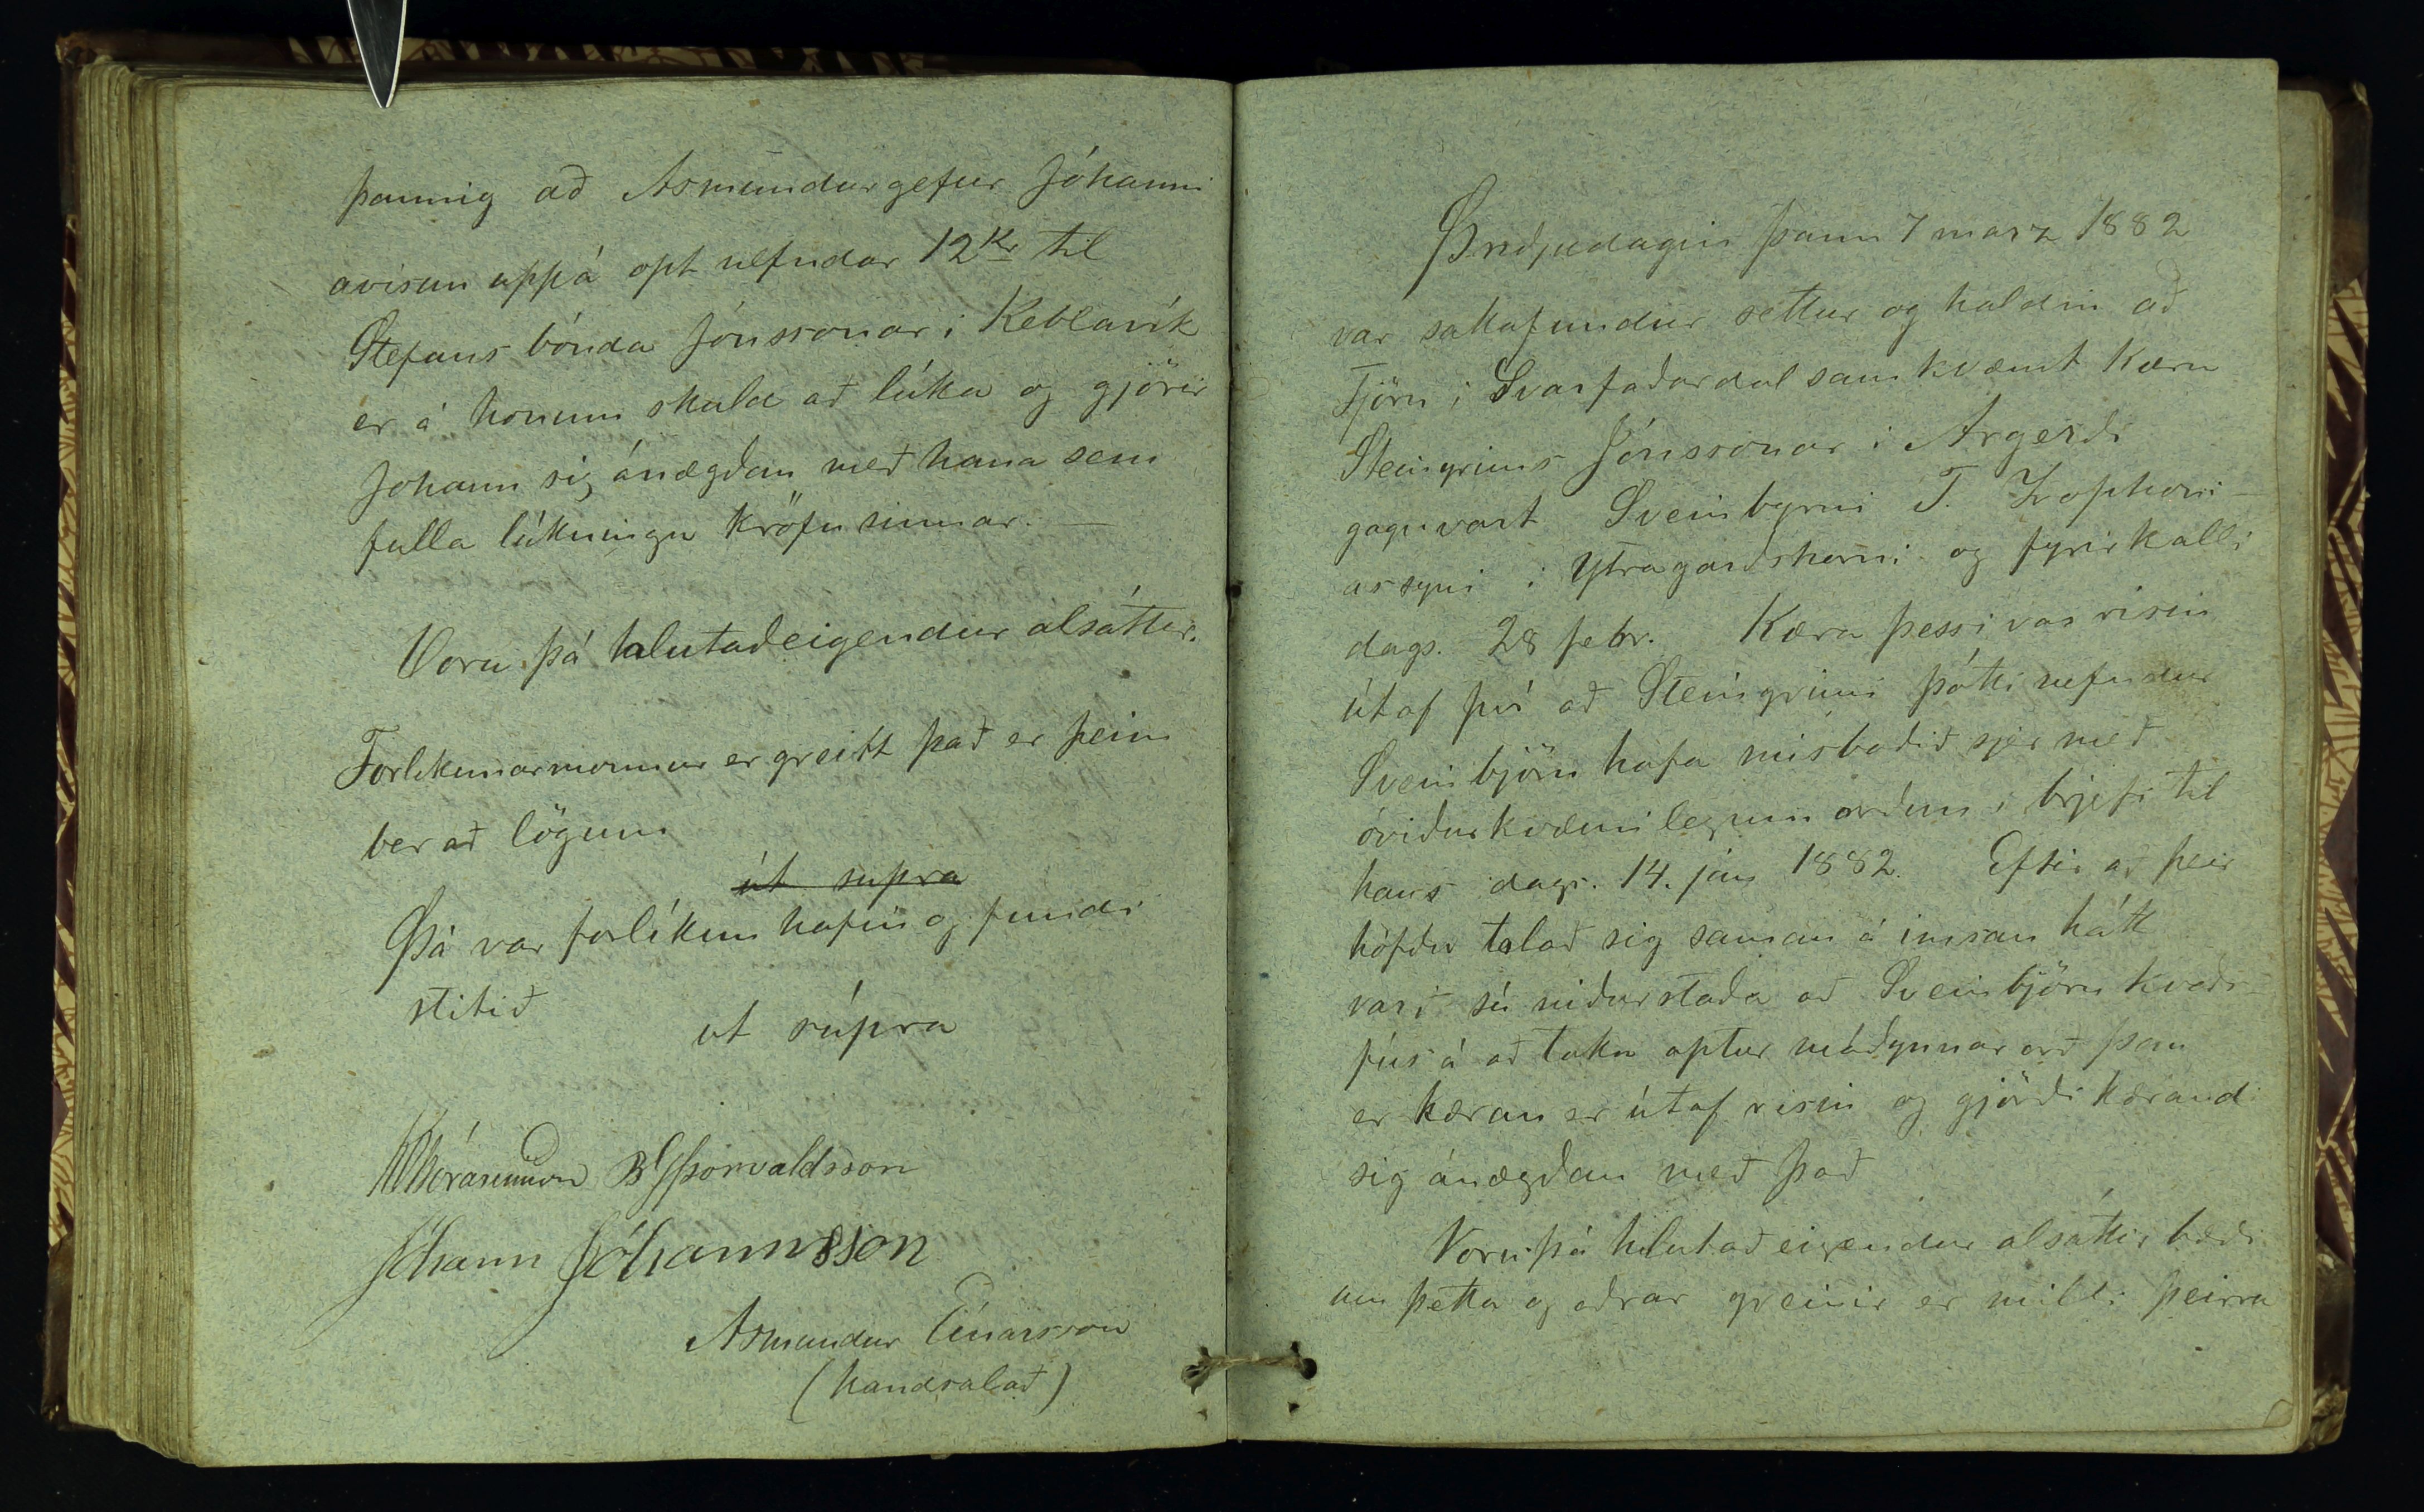 þannig að Asmundur gefur Jóhanni
avísun uppá opt nefndar 12 Kr til
Stefans bónda Jónssonar i Keblavík
er á honum skuld að lúka og gjörir
Johann sig ánægðan með hana sem
fulla lúkningu kröfu sinnar. —
Voru þá hlutaðeigendur alsáttir.
Forlikunarmonnum er greitt það er þeim
ber að lögum
út supra
Þá var forlíkun hafin og fundi
slitið
ut súpra
B G Þorvaldsson
Jóhann Jóhannsson
Asmundur Einarsson
(handsalað)
Þriðjudagin þann 7 marz 1882
var sattafundur settur og haldin að
Tjörn i Svarfaðardal samkvæmt kæru
Steingrims Jónssonar i Argerði
gagnvart Sveinbyrni T. Zophoni-
assyni i Ytragarðshorni og fyrirkalli
dags. 28 febr. Kæra þessi var risin
útaf því að Steingrimi þótti nefndur
Sveinbjörn hafa misboðið sjer með
óviðurkvæmilegum orðum i brjefi til
hans dags. 14. jan 1882. Eftir að þeir
höfðu talað sig saman á imsan hátt
varð sú niðurstaða að Sveinbjörn kvaðs
fús á að taka aptur þau
er kæran er útaf risin og gjörði kærandi
sig ánægðan með það
Voru þá hlutaðeigendur alsáttir bæði
um þetta og aðrar greinir er milli þeirra